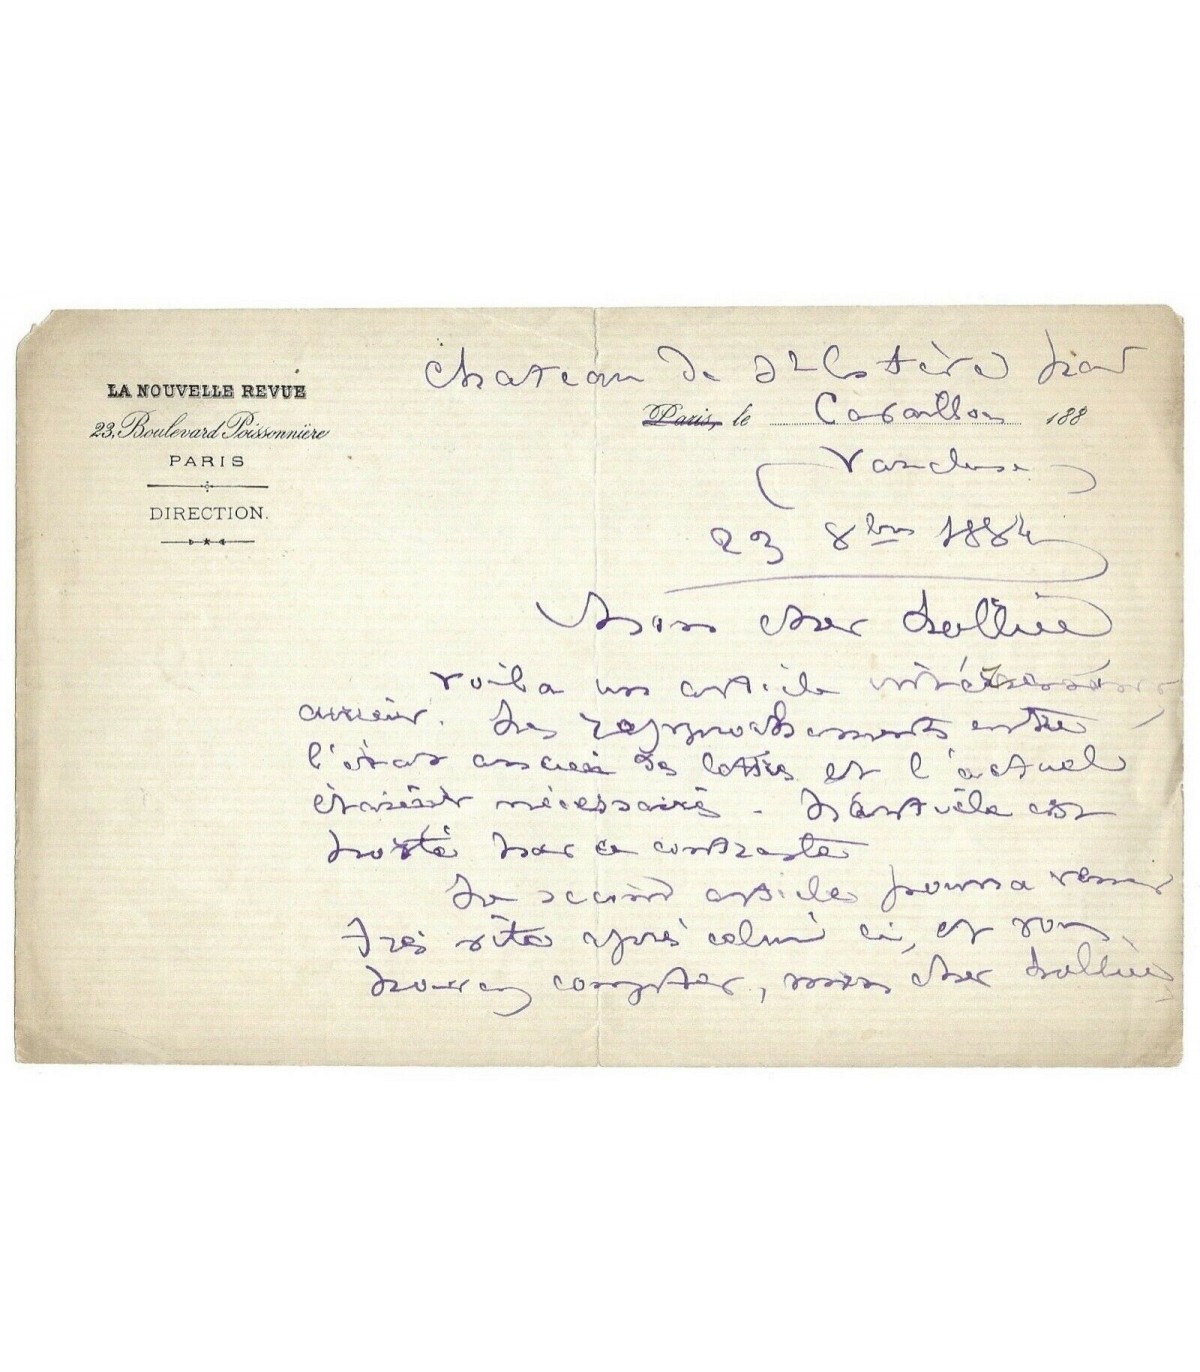 LA NOUVELLE REVUE
23, Boulevard Poissonnière
PARIS
DIRECTION.
Chateau de St Estève par
Paris, le Cavaillon 188
Vaucluse
23 8bre 1884
Mon cher
voila un article intéressant,
curieux. Les rapprochements entre
l'état ancien des lettres et l'actuel
étaient nécessaires. L'article est
porté par ce contraste
Le second article pourra venir
très vite après celui ci, et vous
pouvez compter, mon cher